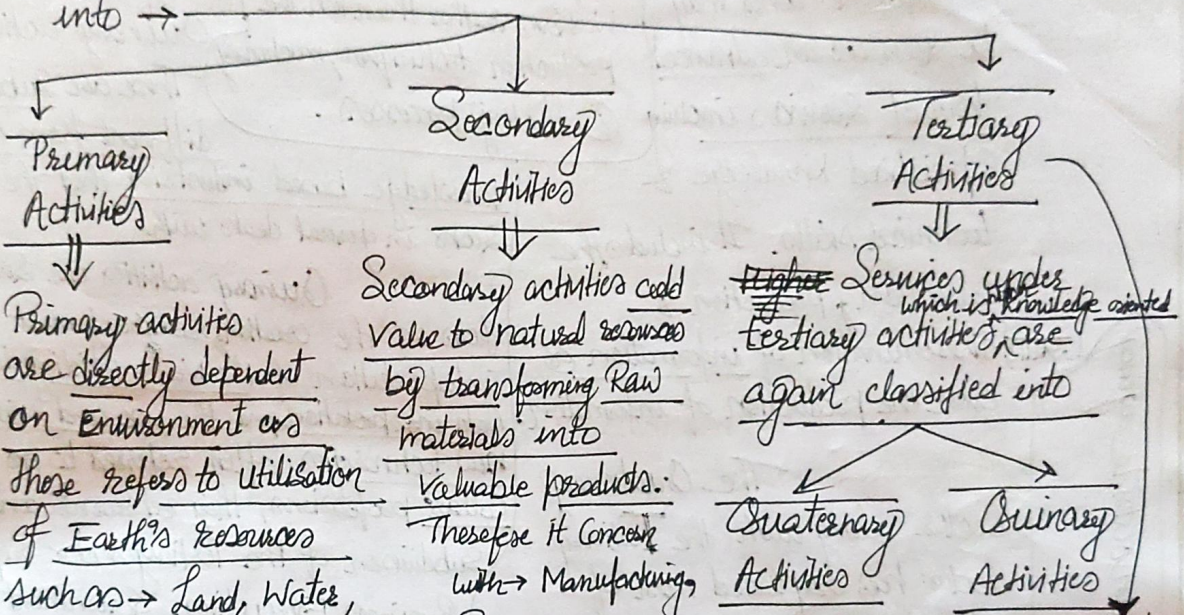 into →
Primary
Activities
Primary activities
are directly dependent
on Environment as
those refers to utilisation
of Earth's resources
such as → Land, Water,
Secondary
Activities
Secondary activities add
value to natural resources
by transforming Raw
materials into
valuable products.
Therefore it Concern
with → Manufacturing,
Tertiary
Activities
Services under
which is knowledge oriented
tertiary activities, are
again classified into
Quaternary
Activities
Quinary
Activities